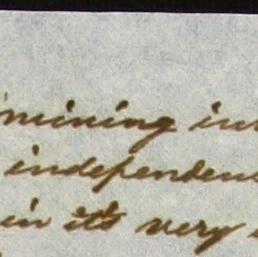 mining in
independen
in it's very